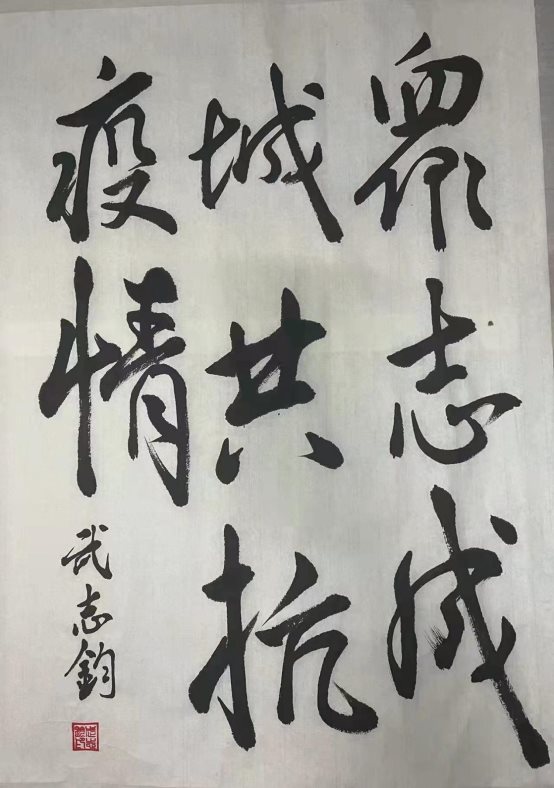 眾志成
城共抗
疫情
武志鈞